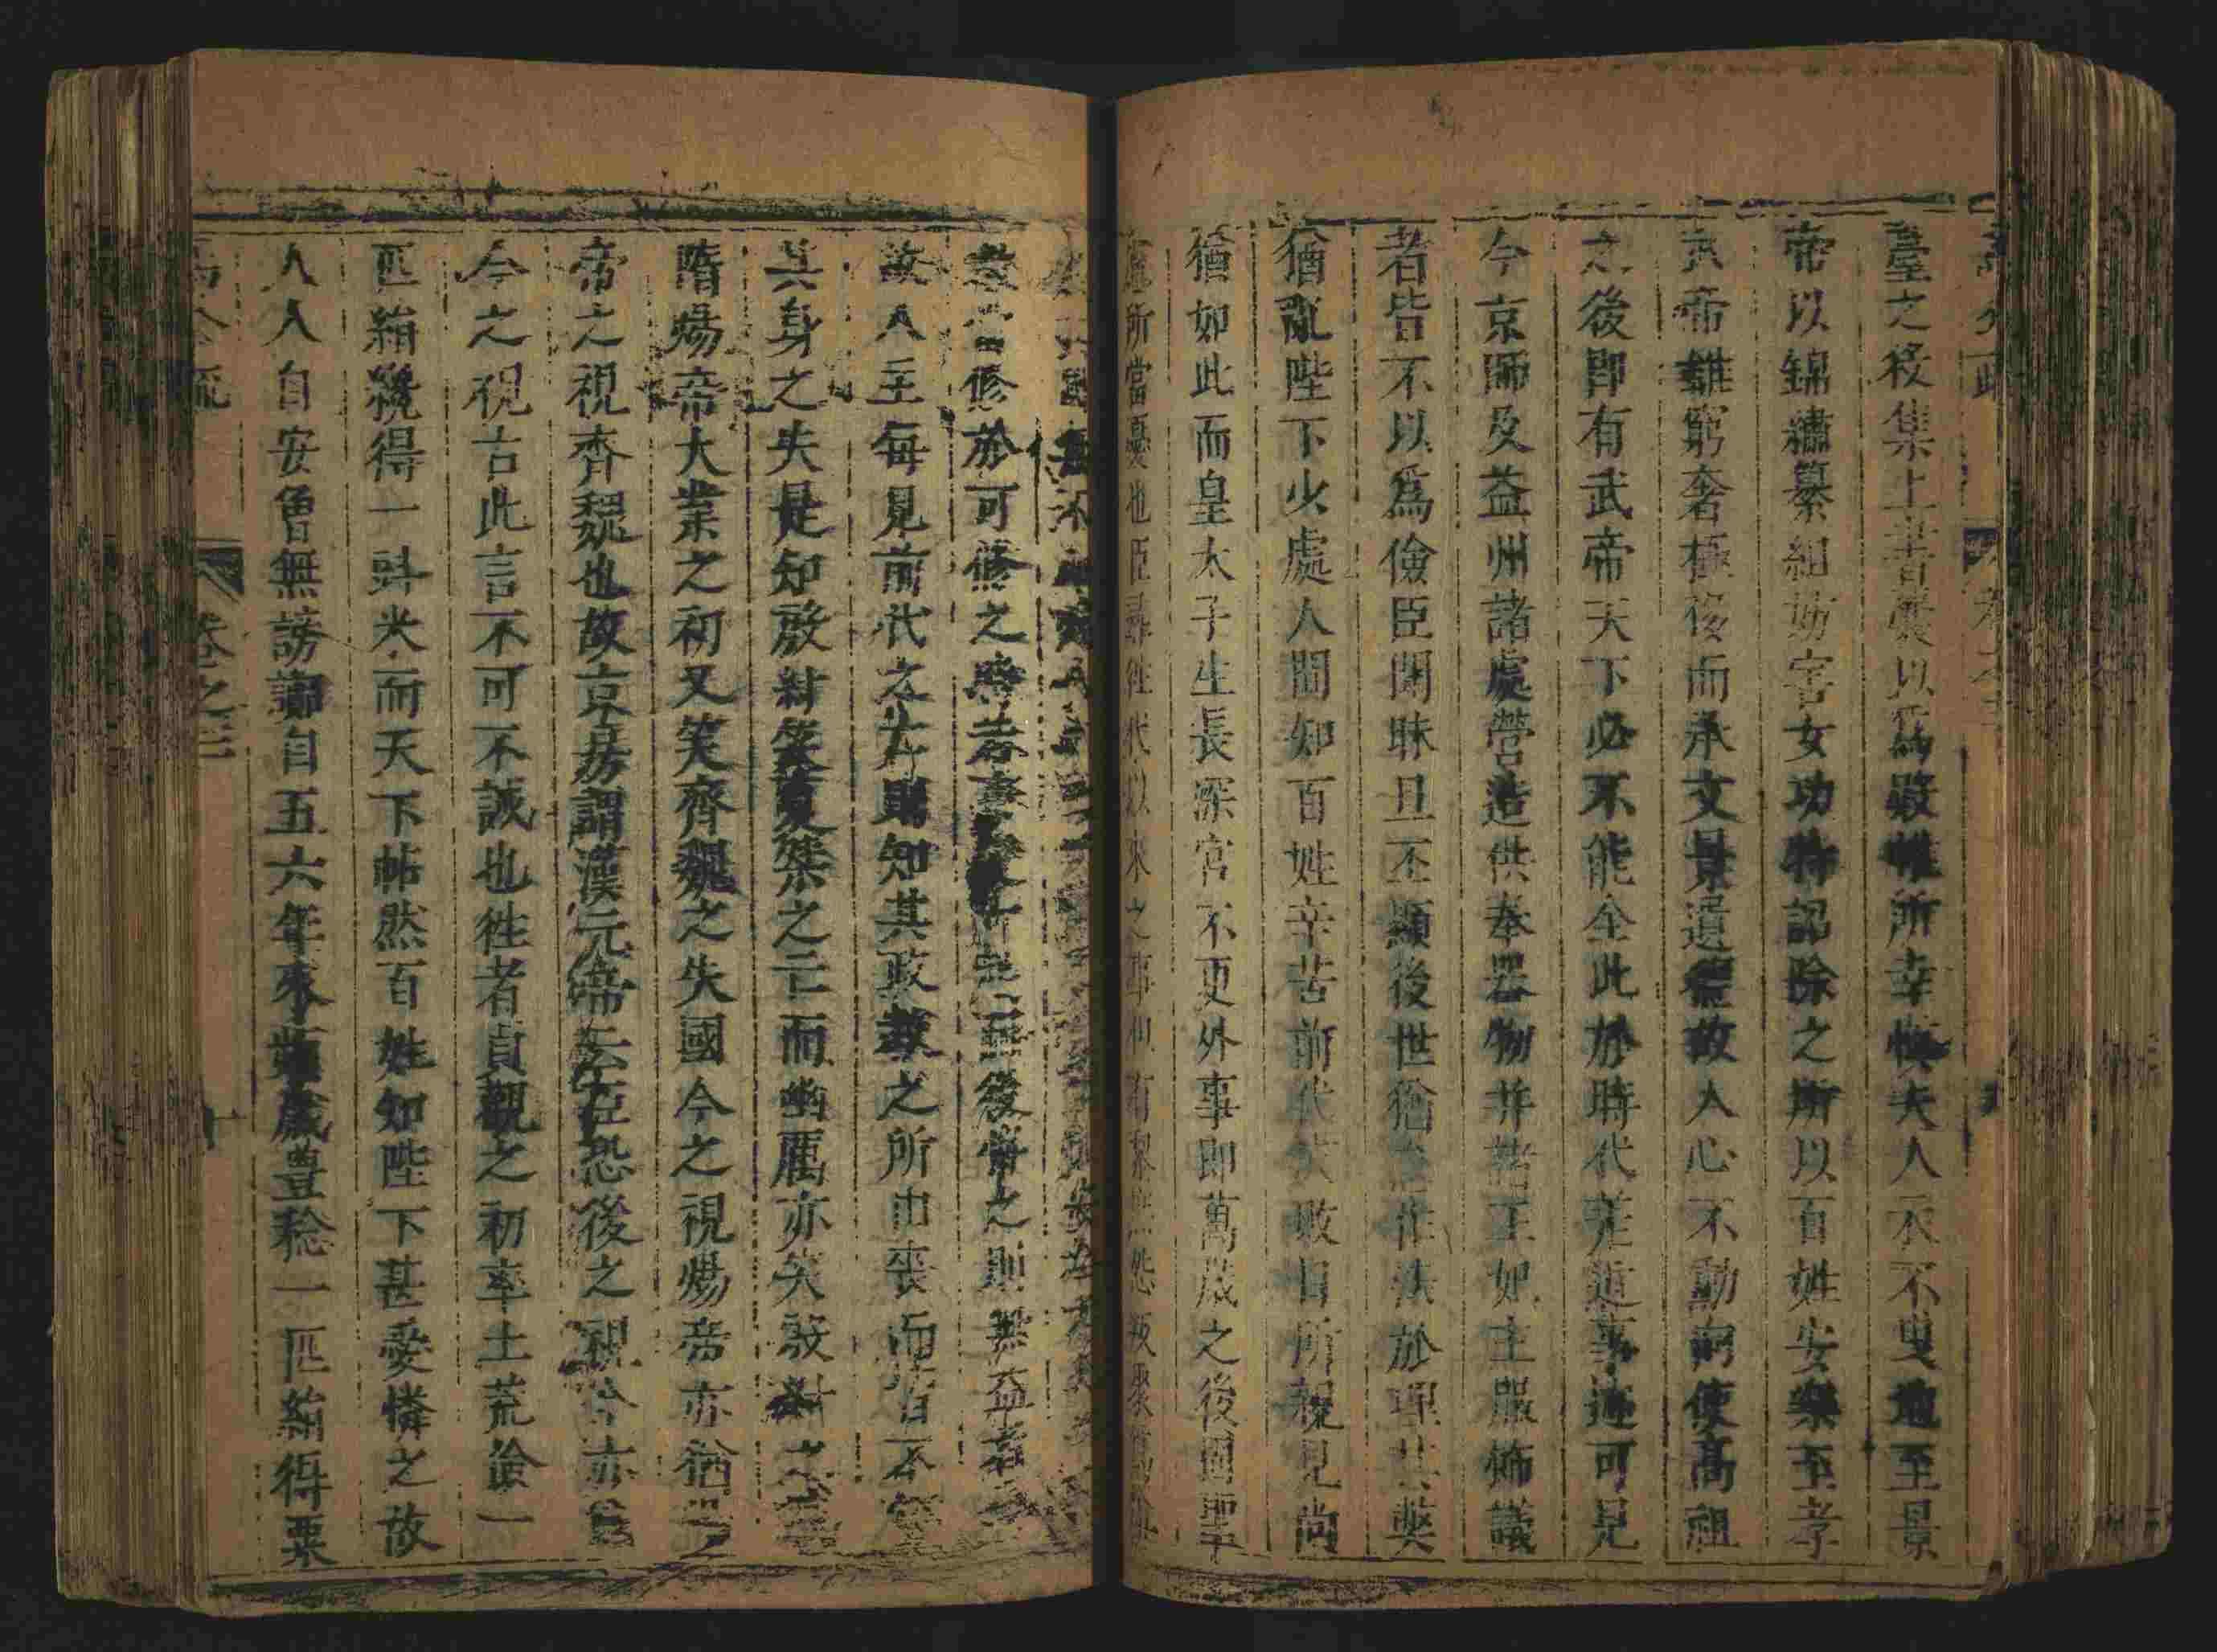 臺之役集上書囊以爲殿帷所幸慎夫人衣不曳地至景
帝以錦繡纂組妨害女功特詔除之所以百姓安樂至孝
武帝雖窮奢極侈而承文景遺德故人心不動向使高祖
之後即有武帝天下必不能全此於時代差近事迹可見
今京師及益州諸處營造供奉器物并諸王妃主服飾議
者皆不以爲儉臣聞昧旦丕顯後世猶怠作法於理其獘
猶亂陛下少處人間知百姓辛苦前代成敗目所親見尚
猶如此而皇太子生長深宮不更外事即萬歲之後固聖
慮所當憂也臣尋往代以來之事但有黎庶怨叛聚
國無不
修於可修之時若事變無後悔之則無益者
故人主每見前代之亡則知其政教之所由喪而皆不知
其身之失是知殷紂笑夏桀之亡而幽厲亦笑殷紂之
隋煬帝大業之初又笑齊魏之失國今之視煬帝亦猶
帝之視齊魏也故京房謂漢元帝云臣恐後之視今亦猶
今之視古此言不可不誡也往者貞觀之初率土荒儉一
匹絹纔得一㪷米而天下帖然百姓知陛下甚愛憐之故
人人自安曾無謗讟自五六年來頻歲豊稔一匹絹得粟
卷之三 十